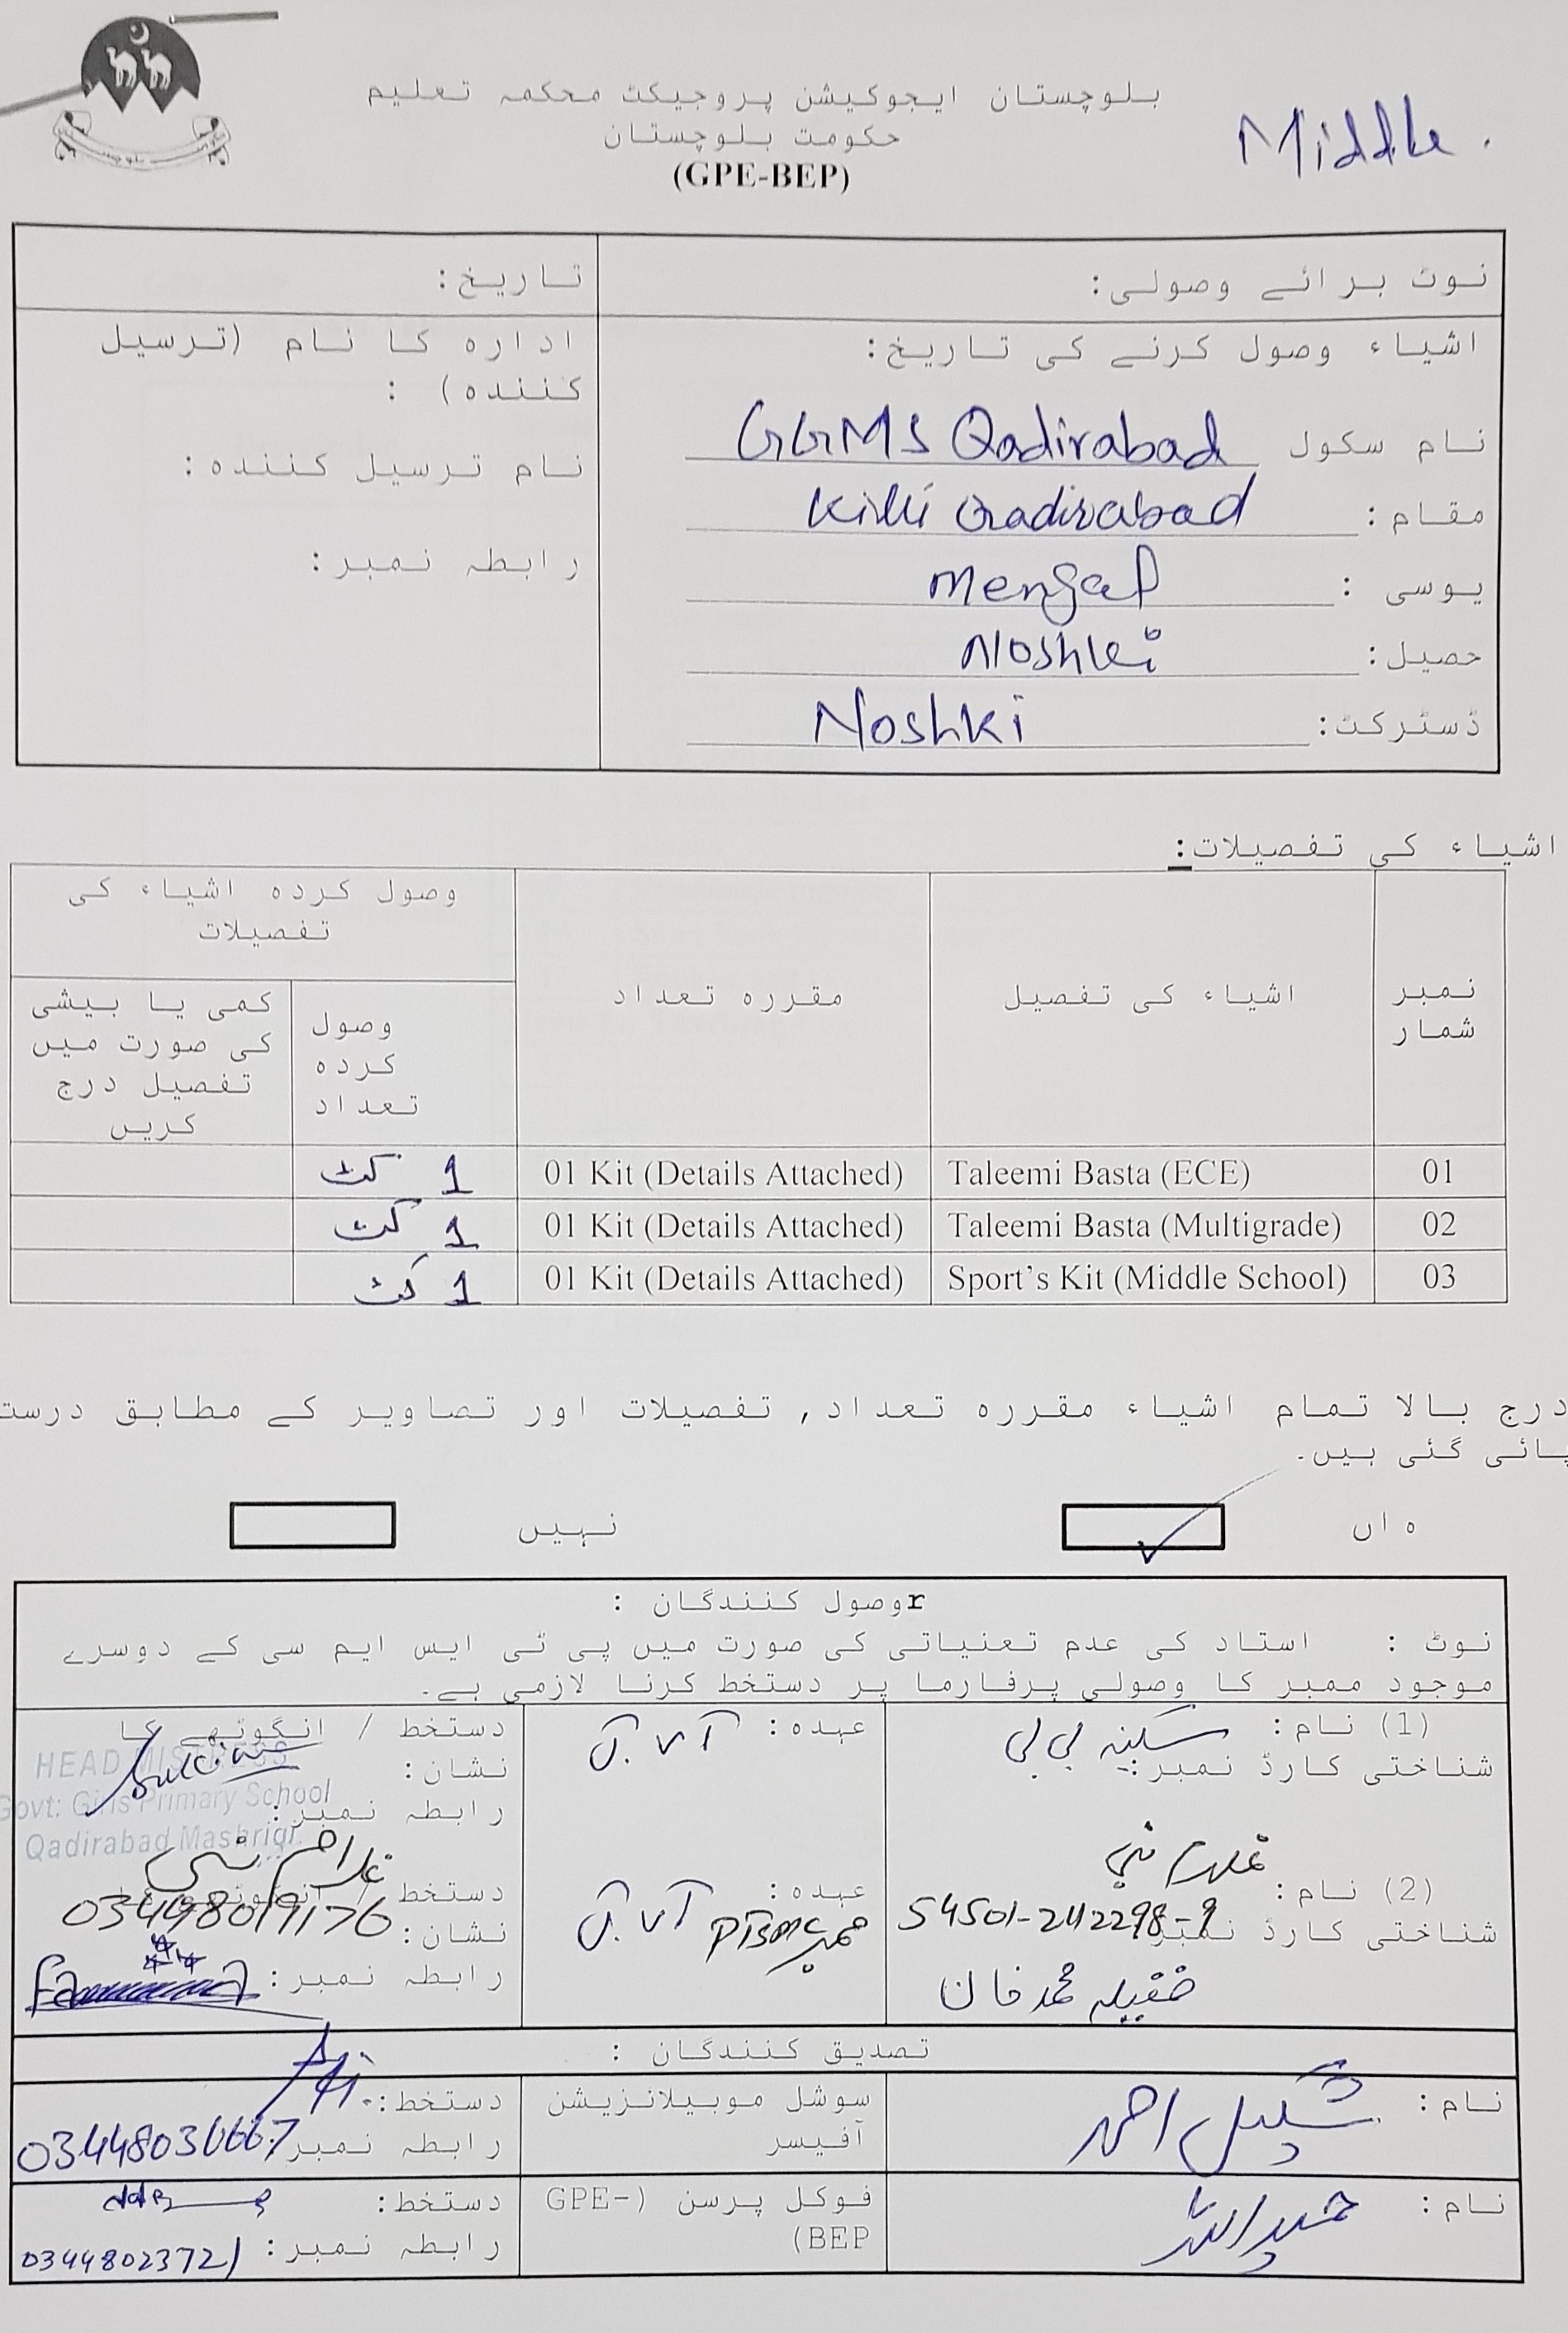 بلوچستان ایجوکیشن پروجیکٹ محکمہ تعلیم
حکومت بلوچستان
(GPE-BEP)
Middle.
نوٹ برائے وصولی:
تاریخ:
اشیاء وصول کرنے کی تاریخ:
نام سکول GGMS Qadirabad
مقام: Killi Qadirabad
یوسی : Mengal
حصیل: Noshki
ڈسٹرکٹ: Noshki
ادارہ کا نام (ترسیل
کنندہ) :
نام ترسیل کنندہ:
رابطہ نمبر:
اشیاء کی تفصیلات:
نمبر شمار
اشیاء کی تفصیل
مقررہ تعداد
وصول کردہ اشیاء کی تفصیلات
وصول کردہ تعداد
کمی یا بیشی کی صورت میں تفصیل درج کریں
01 Taleemi Basta (ECE) 01 Kit (Details Attached) 1 کٹ
02 Taleemi Basta (Multigrade) 01 Kit (Details Attached) 1 کٹ
03 Sport's Kit (Middle School) 01 Kit (Details Attached) 1 کٹ
درج بالا تمام اشیاء مقررہ تعداد, تفصیلات اور تصاویر کے مطابق درست
پائی گئی ہیں۔
ہاں ✓
نہیں
rوصول کنندگان :
نوٹ : استاد کی عدم تعنیاتی کی صورت میں پی ٹی ایس ایم سی کے دوسرے
موجود ممبر کا وصولی پرفارما پر دستخط کرنا لازمی ہے۔
(1) نام: سکینہ بی بی
شناختی کارڈ نمبر:
عہدہ: J.V.T
دستخط / انگوٹھے کا
نشان:
رابطہ نمبر:
HEAD MISTRESS
Govt: Girls Primary School
Qadirabad Mashriqi
(2) نام:
شناختی کارڈ نمبر: 54501-2112298-9
محمد خان
عہدہ: J.VT
PTSMC ممبر
دستخط / انگوٹھے کا
غلام نبی
03448019176
نشان:
رابطہ نمبر:
تصدیق کنندگان :
نام: شکیل احمد
سوشل موبیلائزیشن
آفیسر
دستخط:
رابطہ نمبر 03448036667
نام:
فوکل پرسن (GPE-
BEP)
دستخط:
رابطہ نمبر: 03448023721